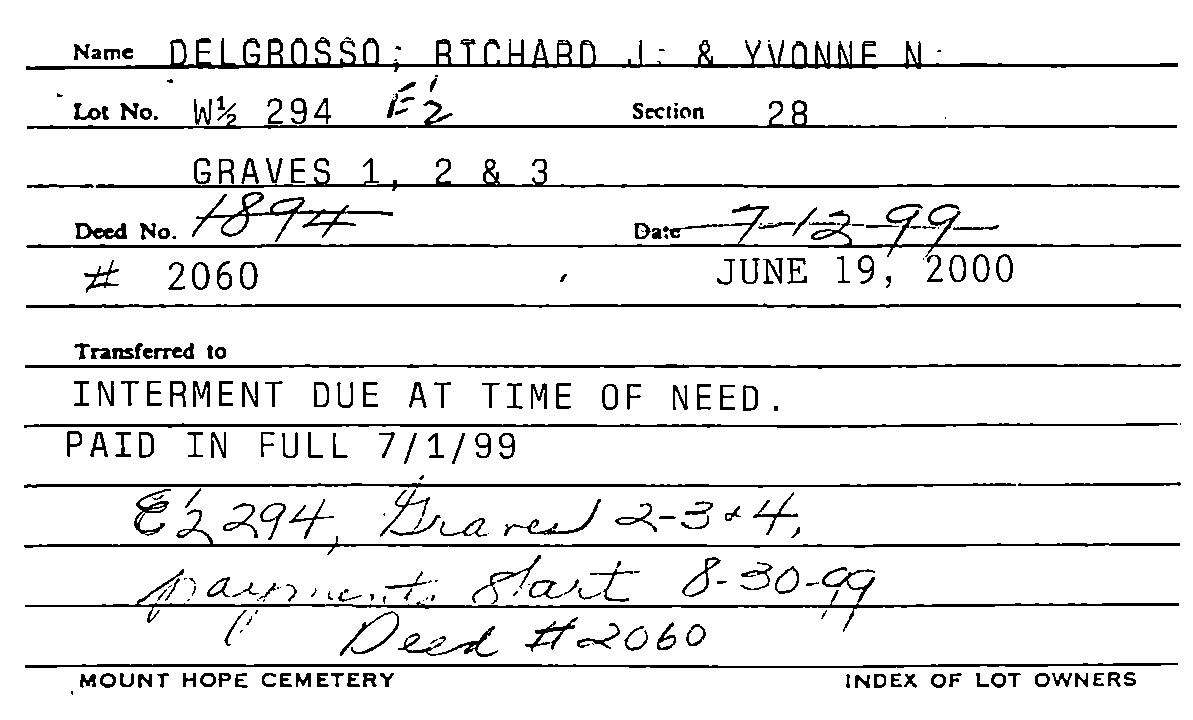 Name DELGROSSO, RICHARD J. & YVONNE N.
Lot No. W½ 294 E½ Section 28
GRAVES 1, 2 & 3
Deed No. 1894 Date 7-12-99
# 2060 JUNE 19, 2000
Transferred to
INTERMENT DUE AT TIME OF NEED.
PAID IN FULL 7/1/99
E½ 294, Graves 2-3 & 4,
payments start 8-30-99
Deed # 2060
MOUNT HOPE CEMETERY INDEX OF LOT OWNERS